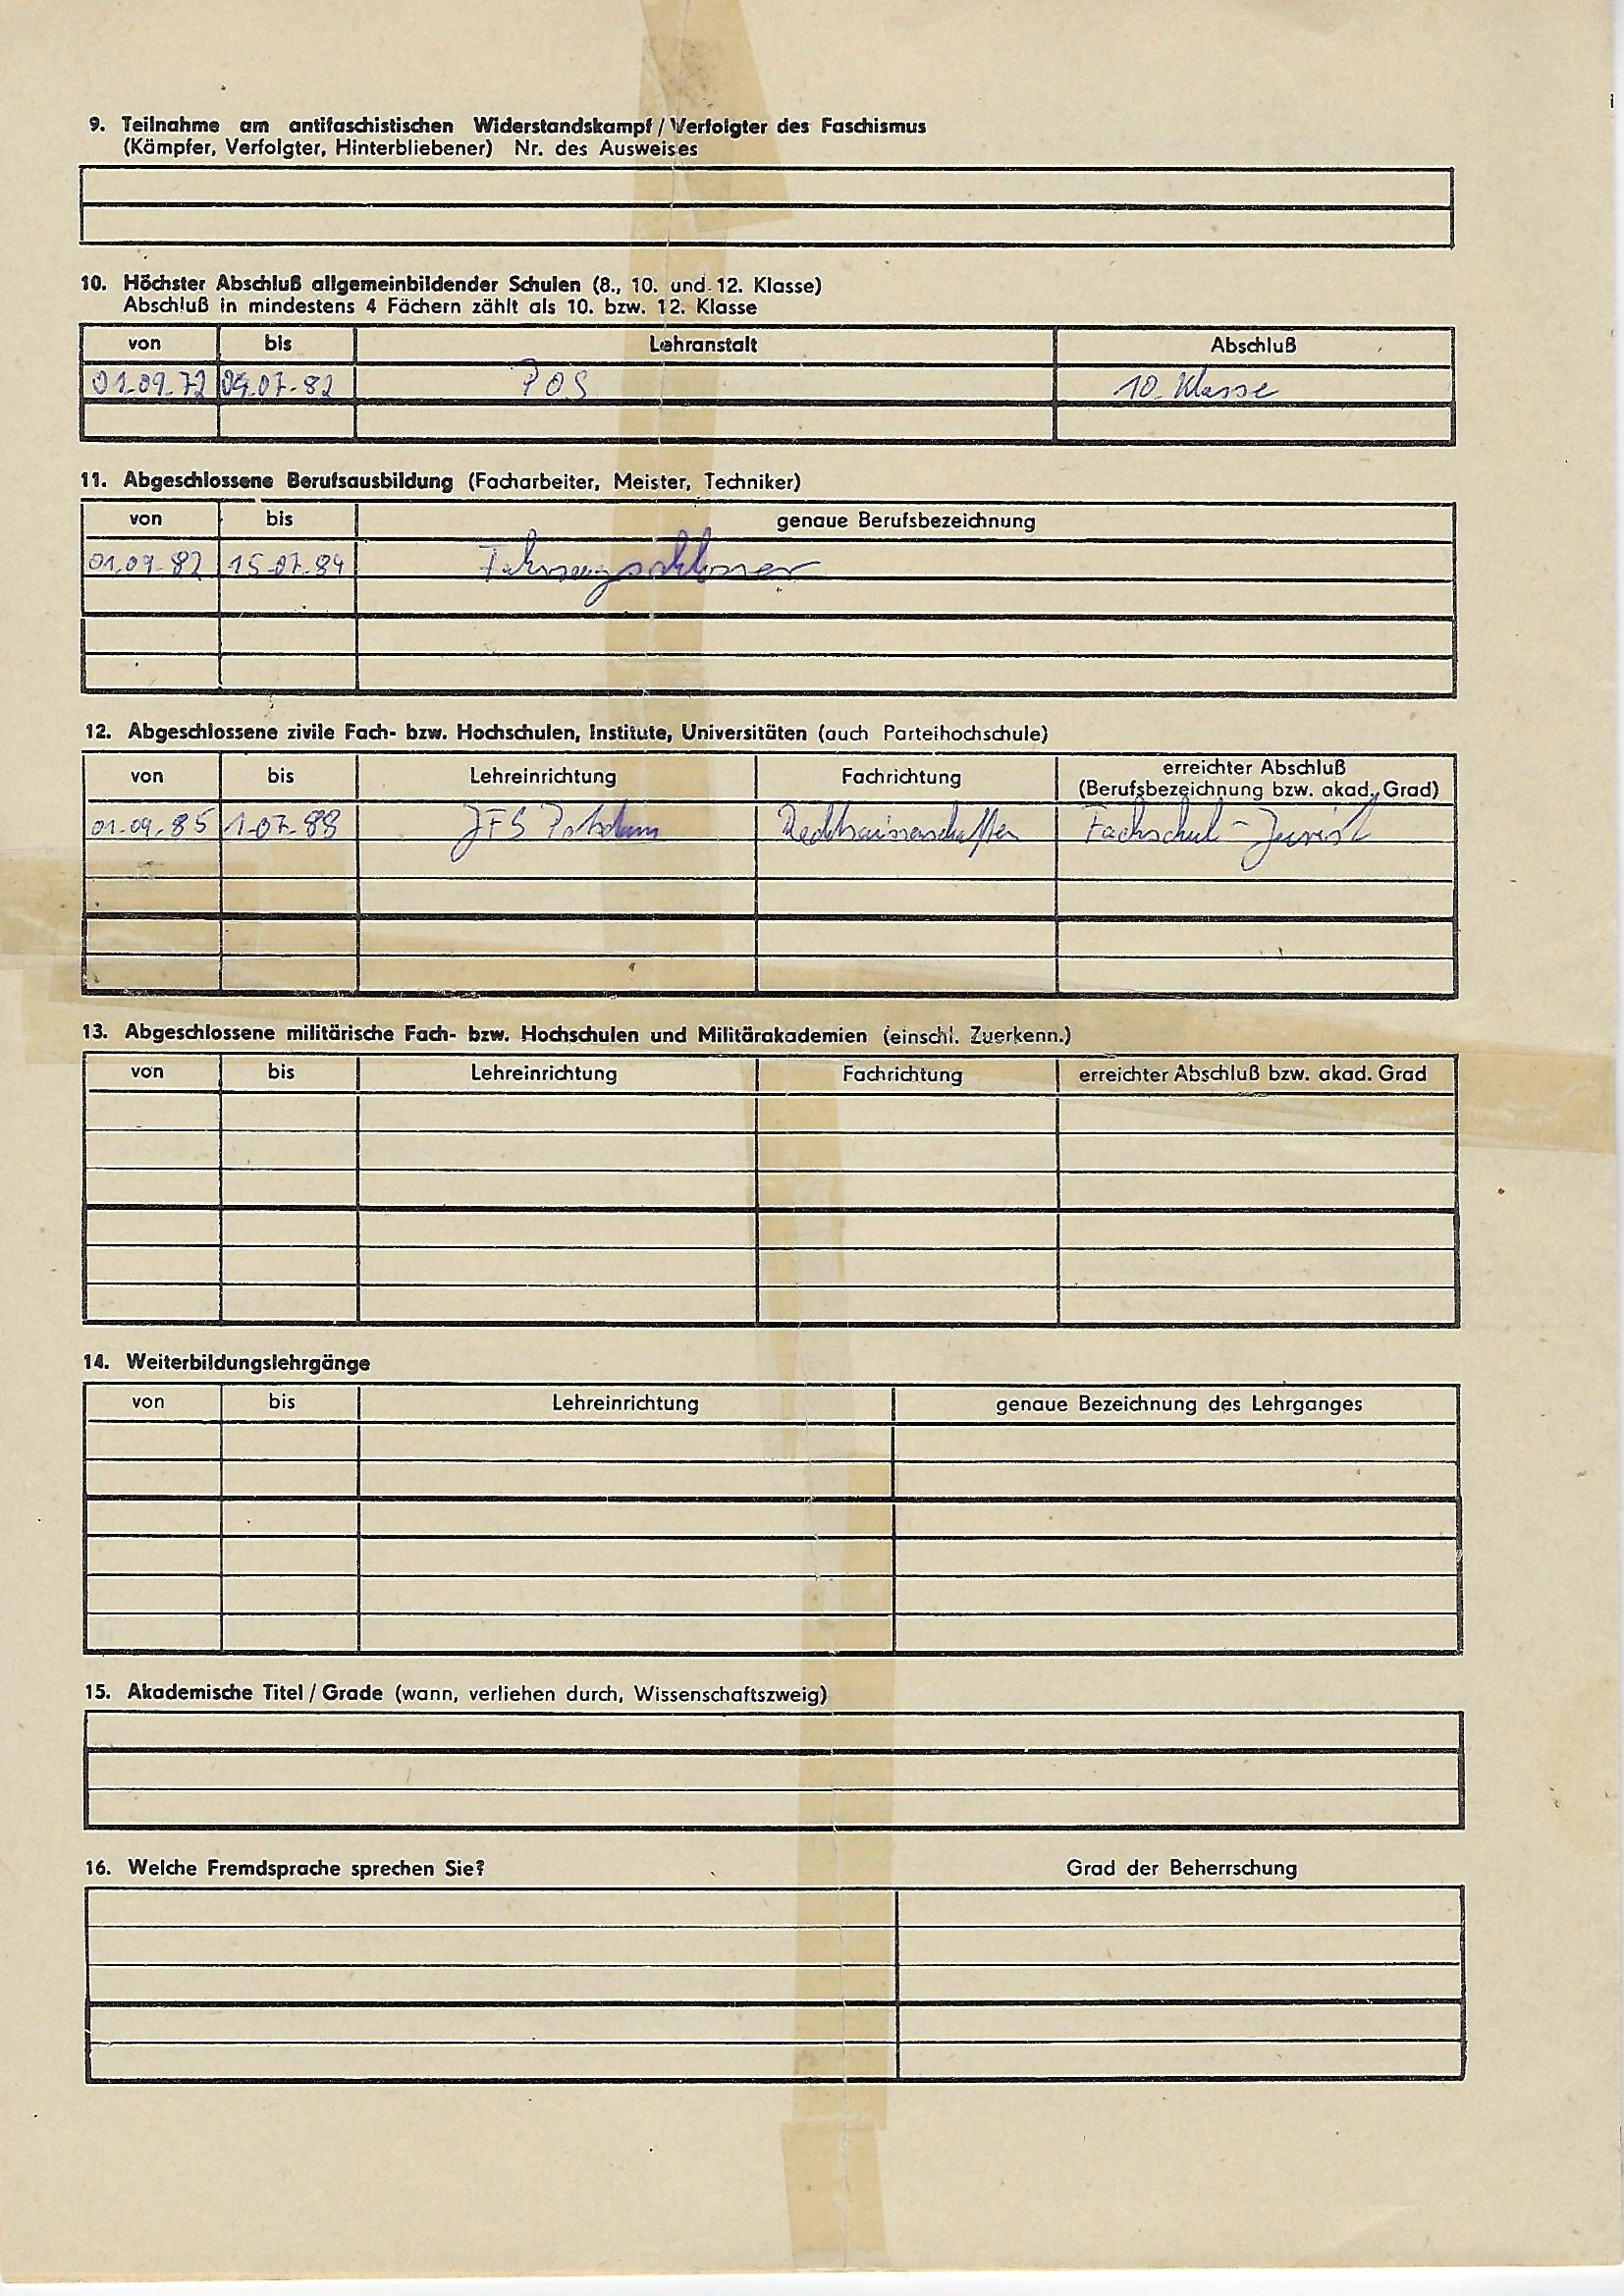 9. Teilnahme am antifaschistischen Widerstandskampf / Verfolgter des Faschismus
(Kämpfer, Verfolgter, Hinterbliebener) Nr. des Ausweises
10. Höchster Abschluß allgemeinbildender Schulen (8., 10. und 12. Klasse)
Abschluß in mindestens 4 Fächern zählt als 10. bzw. 12. Klasse
von bis Lehranstalt Abschluß
01.09.72 04.07.82 POS 10. Klasse
11. Abgeschlossene Berufsausbildung (Facharbeiter, Meister, Techniker)
von bis genaue Berufsbezeichnung
01.09.82 15.07.84 Fahrzeugschlosser
12. Abgeschlossene zivile Fach- bzw. Hochschulen, Institute, Universitäten (auch Parteihochschule)
von bis Lehreinrichtung Fachrichtung erreichter Abschluß
(Berufsbezeichnung bzw. akad. Grad)
01.09.85 1.07.88 JFS Potsdam Rechtswissenschaften Fachschul-Jurist
13. Abgeschlossene militärische Fach- bzw. Hochschulen und Militärakademien (einschl. Zuerkenn.)
von bis Lehreinrichtung Fachrichtung erreichter Abschluß bzw. akad. Grad
14. Weiterbildungslehrgänge
von bis Lehreinrichtung genaue Bezeichnung des Lehrganges
15. Akademische Titel / Grade (wann, verliehen durch, Wissenschaftszweig)
16. Welche Fremdsprache sprechen Sie? Grad der Beherrschung